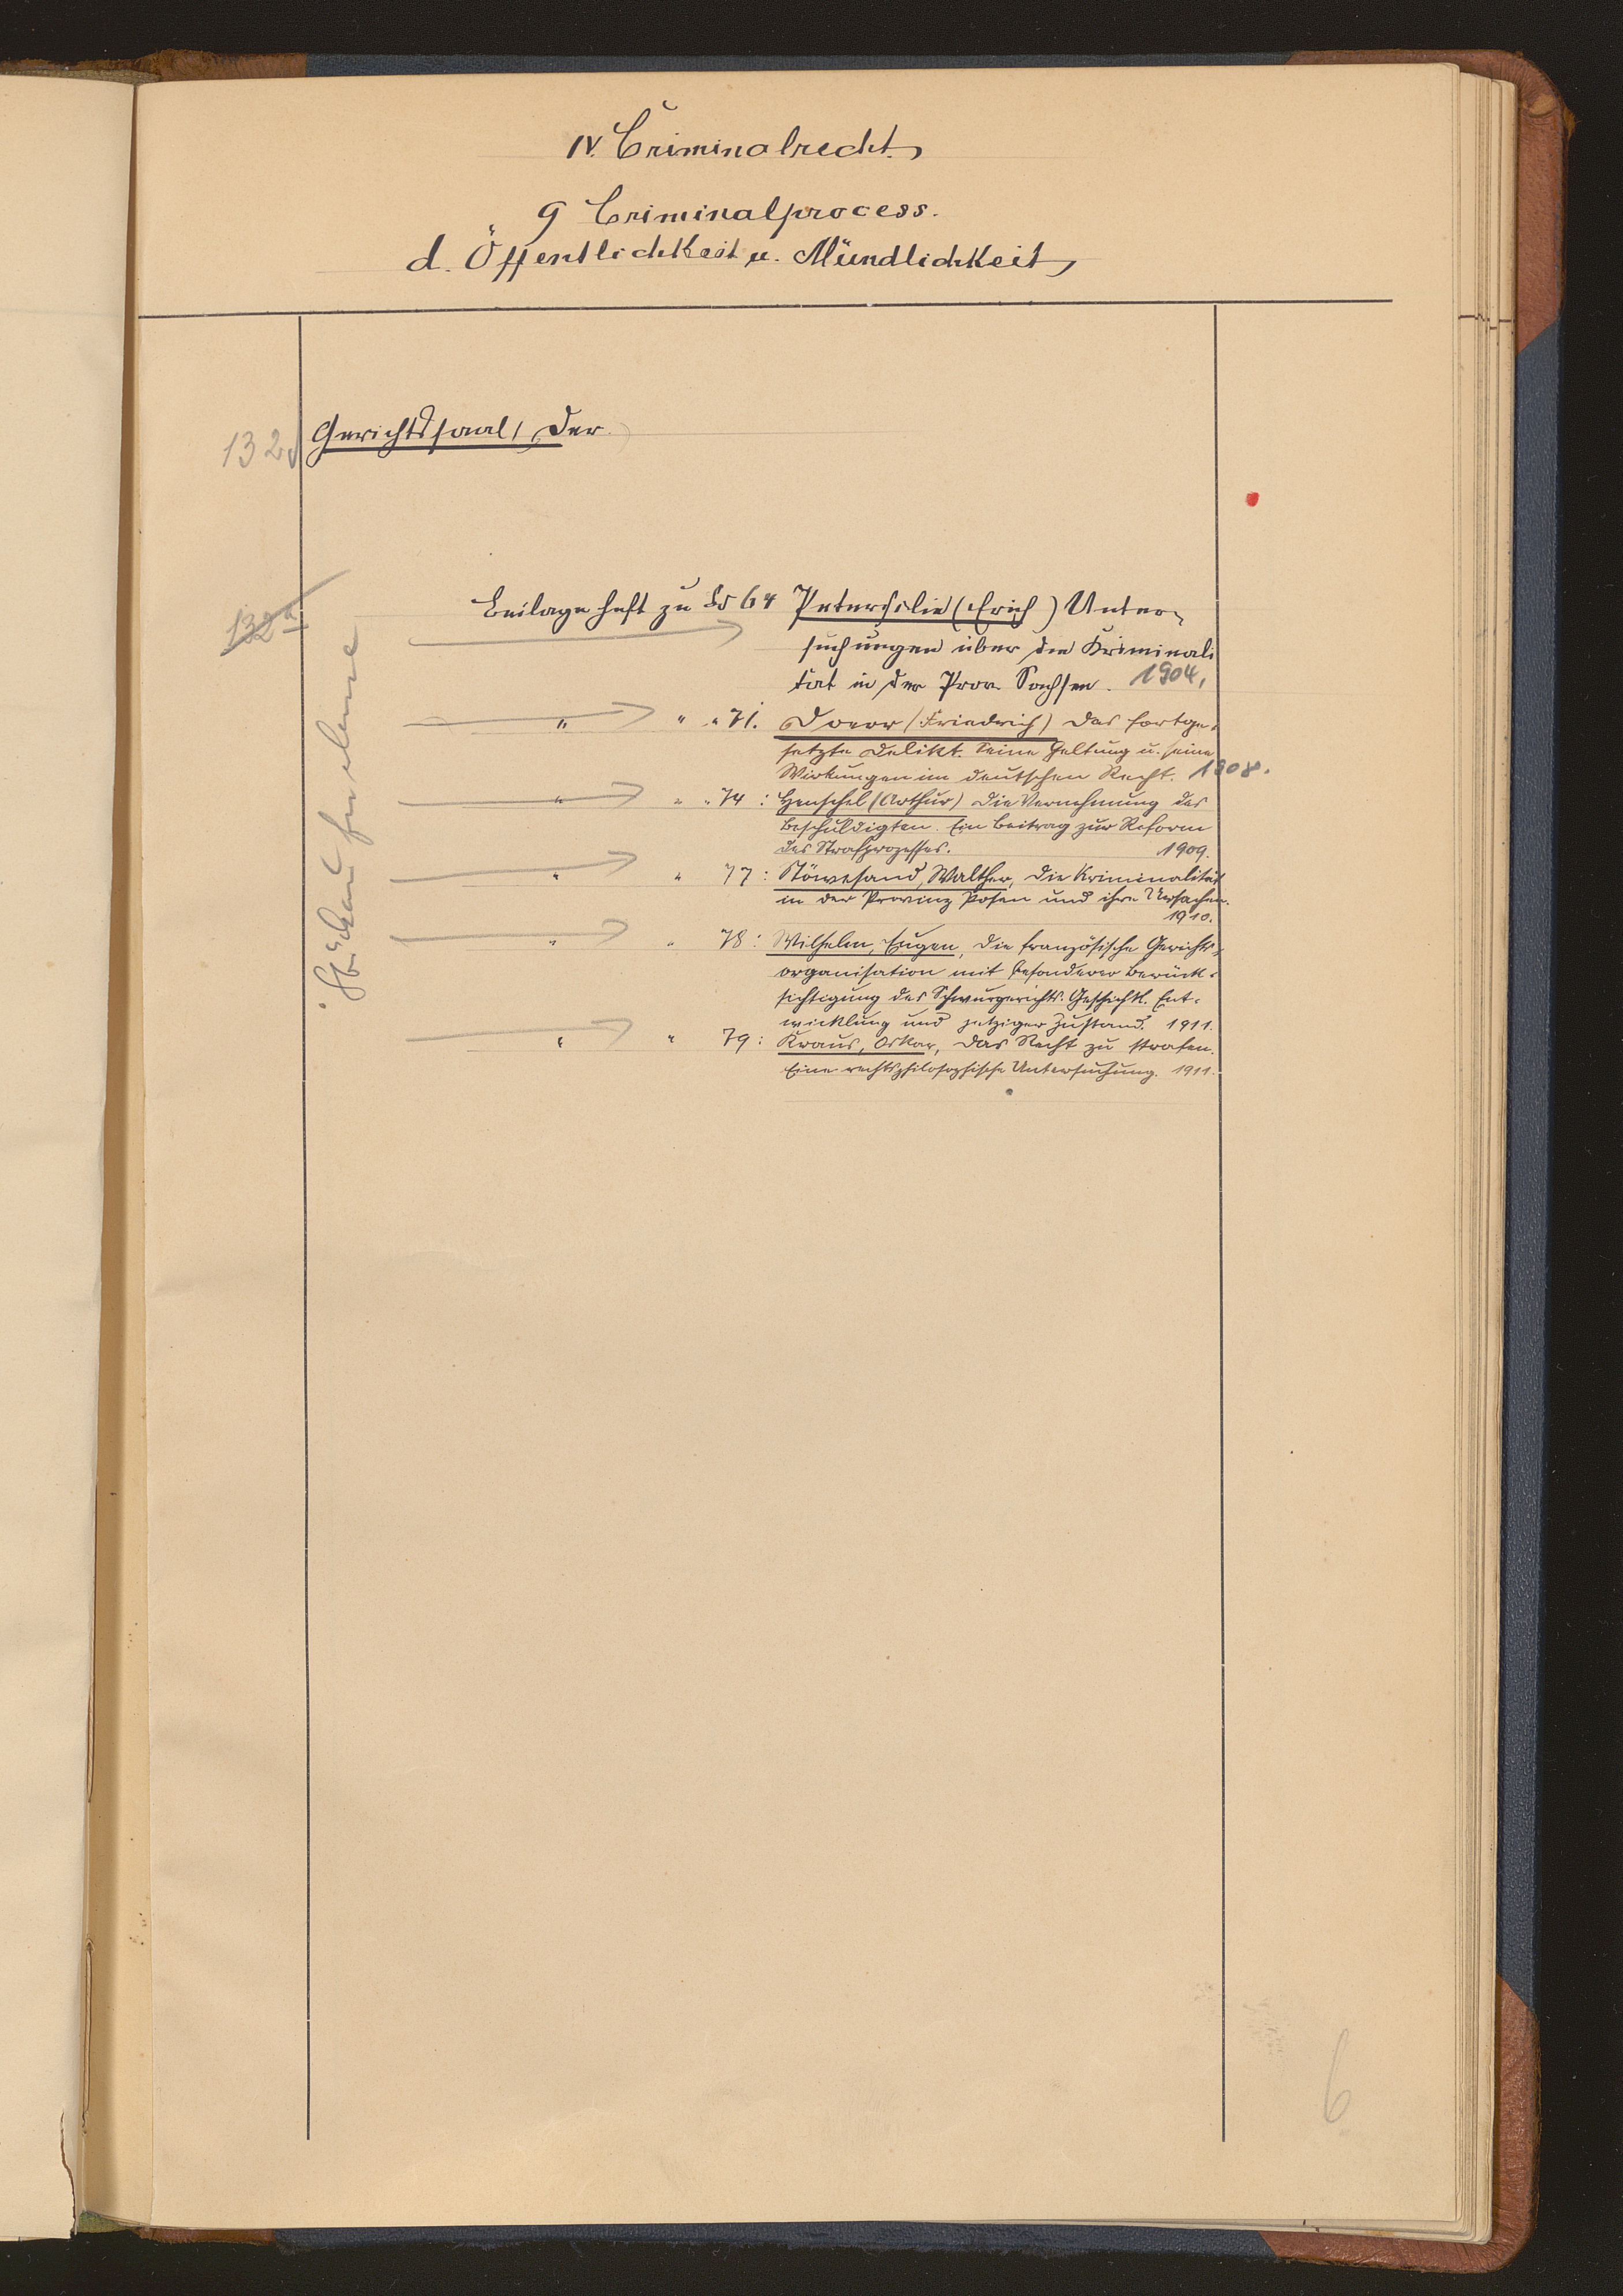 IV. Criminalrecht
9 Criminalprocess.
d. Öffentlichkeit u. Mündlichkeit
132
Gerichtssaal, Der
132a
Beilageheft zu Bd 64 Petersilie (Erich) Unter-
suchungen über die Kriminali
tät in der Prov. Sachsen. 1904,
" " " 71. Doerr (Friedrich) Das fortge-
setzte Delikt. Seine Geltung u. seine
Wirkungen im deutschen Recht. 1908.
" " " 74: Henschel (Arthur) Die Vernehmung des
Beschuldigten. Ein Beitrag zur Reform
des Strafprozesses. 1909.
" " 77: Stöwesand, Walther, Die Kriminalität
in der Provinz Posen und ihre Ursachen.
1910.
" " 78: Wilhelm, Eugen, Die französische Gerichts-
organisation mit besonderer Berück-
sichtigung des Schwurgerichts. Geschichtl. Ent-
wicklung und jetziger Zustand. 1911.
" " 79: Kraus, Oskar, Das Recht zu strafen.
Eine rechtsphilosophische Untersuchung. 1911.
6